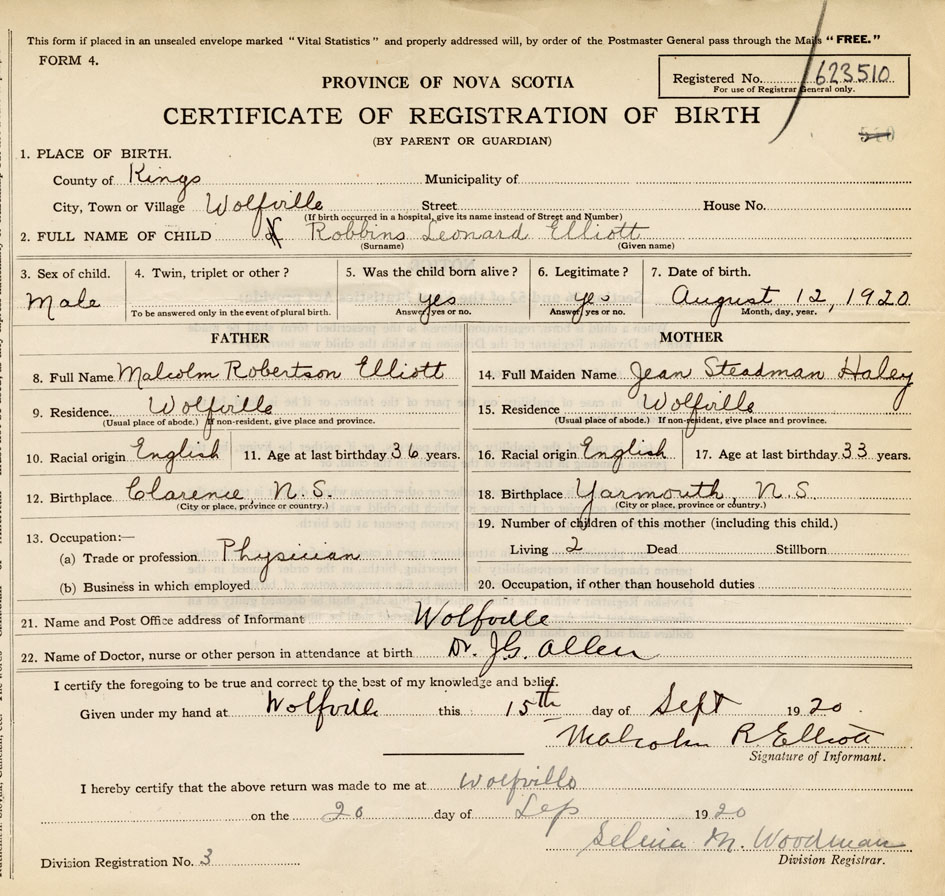 This form if placed in an unsealed envelope marked "Vital Statistics" and properly addressed will, by order of the Postmaster General pass through the Mails "FREE."
FORM 4.
PROVINCE OF NOVA SCOTIA
Registered No. 623510
For use of Registrar General only.
CERTIFICATE OF REGISTRATION OF BIRTH
(BY PARENT OR GUARDIAN)
1. PLACE OF BIRTH.
County of Kings Municipality of
City, Town or Village Wolfville Street House No.
(If birth occurred in a hospital, give its name instead of Street and Number)
2. FULL NAME OF CHILD Robbins Leonard Elliott
(Surname) (Given name)
3. Sex of child. 4. Twin, triplet or other? 5. Was the child born alive? 6. Legitimate? 7. Date of birth.
Male yes yes August 12, 1920
To be answered only in the event of plural birth. Answer yes or no. Answer yes or no. Month, day, year.
FATHER MOTHER
8. Full Name Malcolm Robertson Elliott 14. Full Maiden Name Jean Steadman Haley
9. Residence Wolfville 15. Residence Wolfville
(Usual place of abode.) If non-resident, give place and province. (Usual place of abode.) If non-resident, give place and province.
10. Racial origin English 11. Age at last birthday 36 years. 16. Racial origin English 17. Age at last birthday 33 years.
12. Birthplace Clarence, N.S. 18. Birthplace Yarmouth, N.S.
(City or place, province or country.) (City or place, province or country.)
19. Number of children of this mother (including this child.)
13. Occupation:—
(a) Trade or profession Physician Living 2 Dead Stillborn
(b) Business in which employed 20. Occupation, if other than household duties
21. Name and Post Office address of Informant Wolfville
22. Name of Doctor, nurse or other person in attendance at birth Dr. J.G. Allen
I certify the foregoing to be true and correct to the best of my knowledge and belief.
Given under my hand at Wolfville this 15th day of Sept 1920.
Malcolm R. Elliott
Signature of Informant.
I hereby certify that the above return was made to me at Wolfville
on the 20 day of Sep 1920
Selina M. Woodman
Division Registrar.
Division Registration No. 3